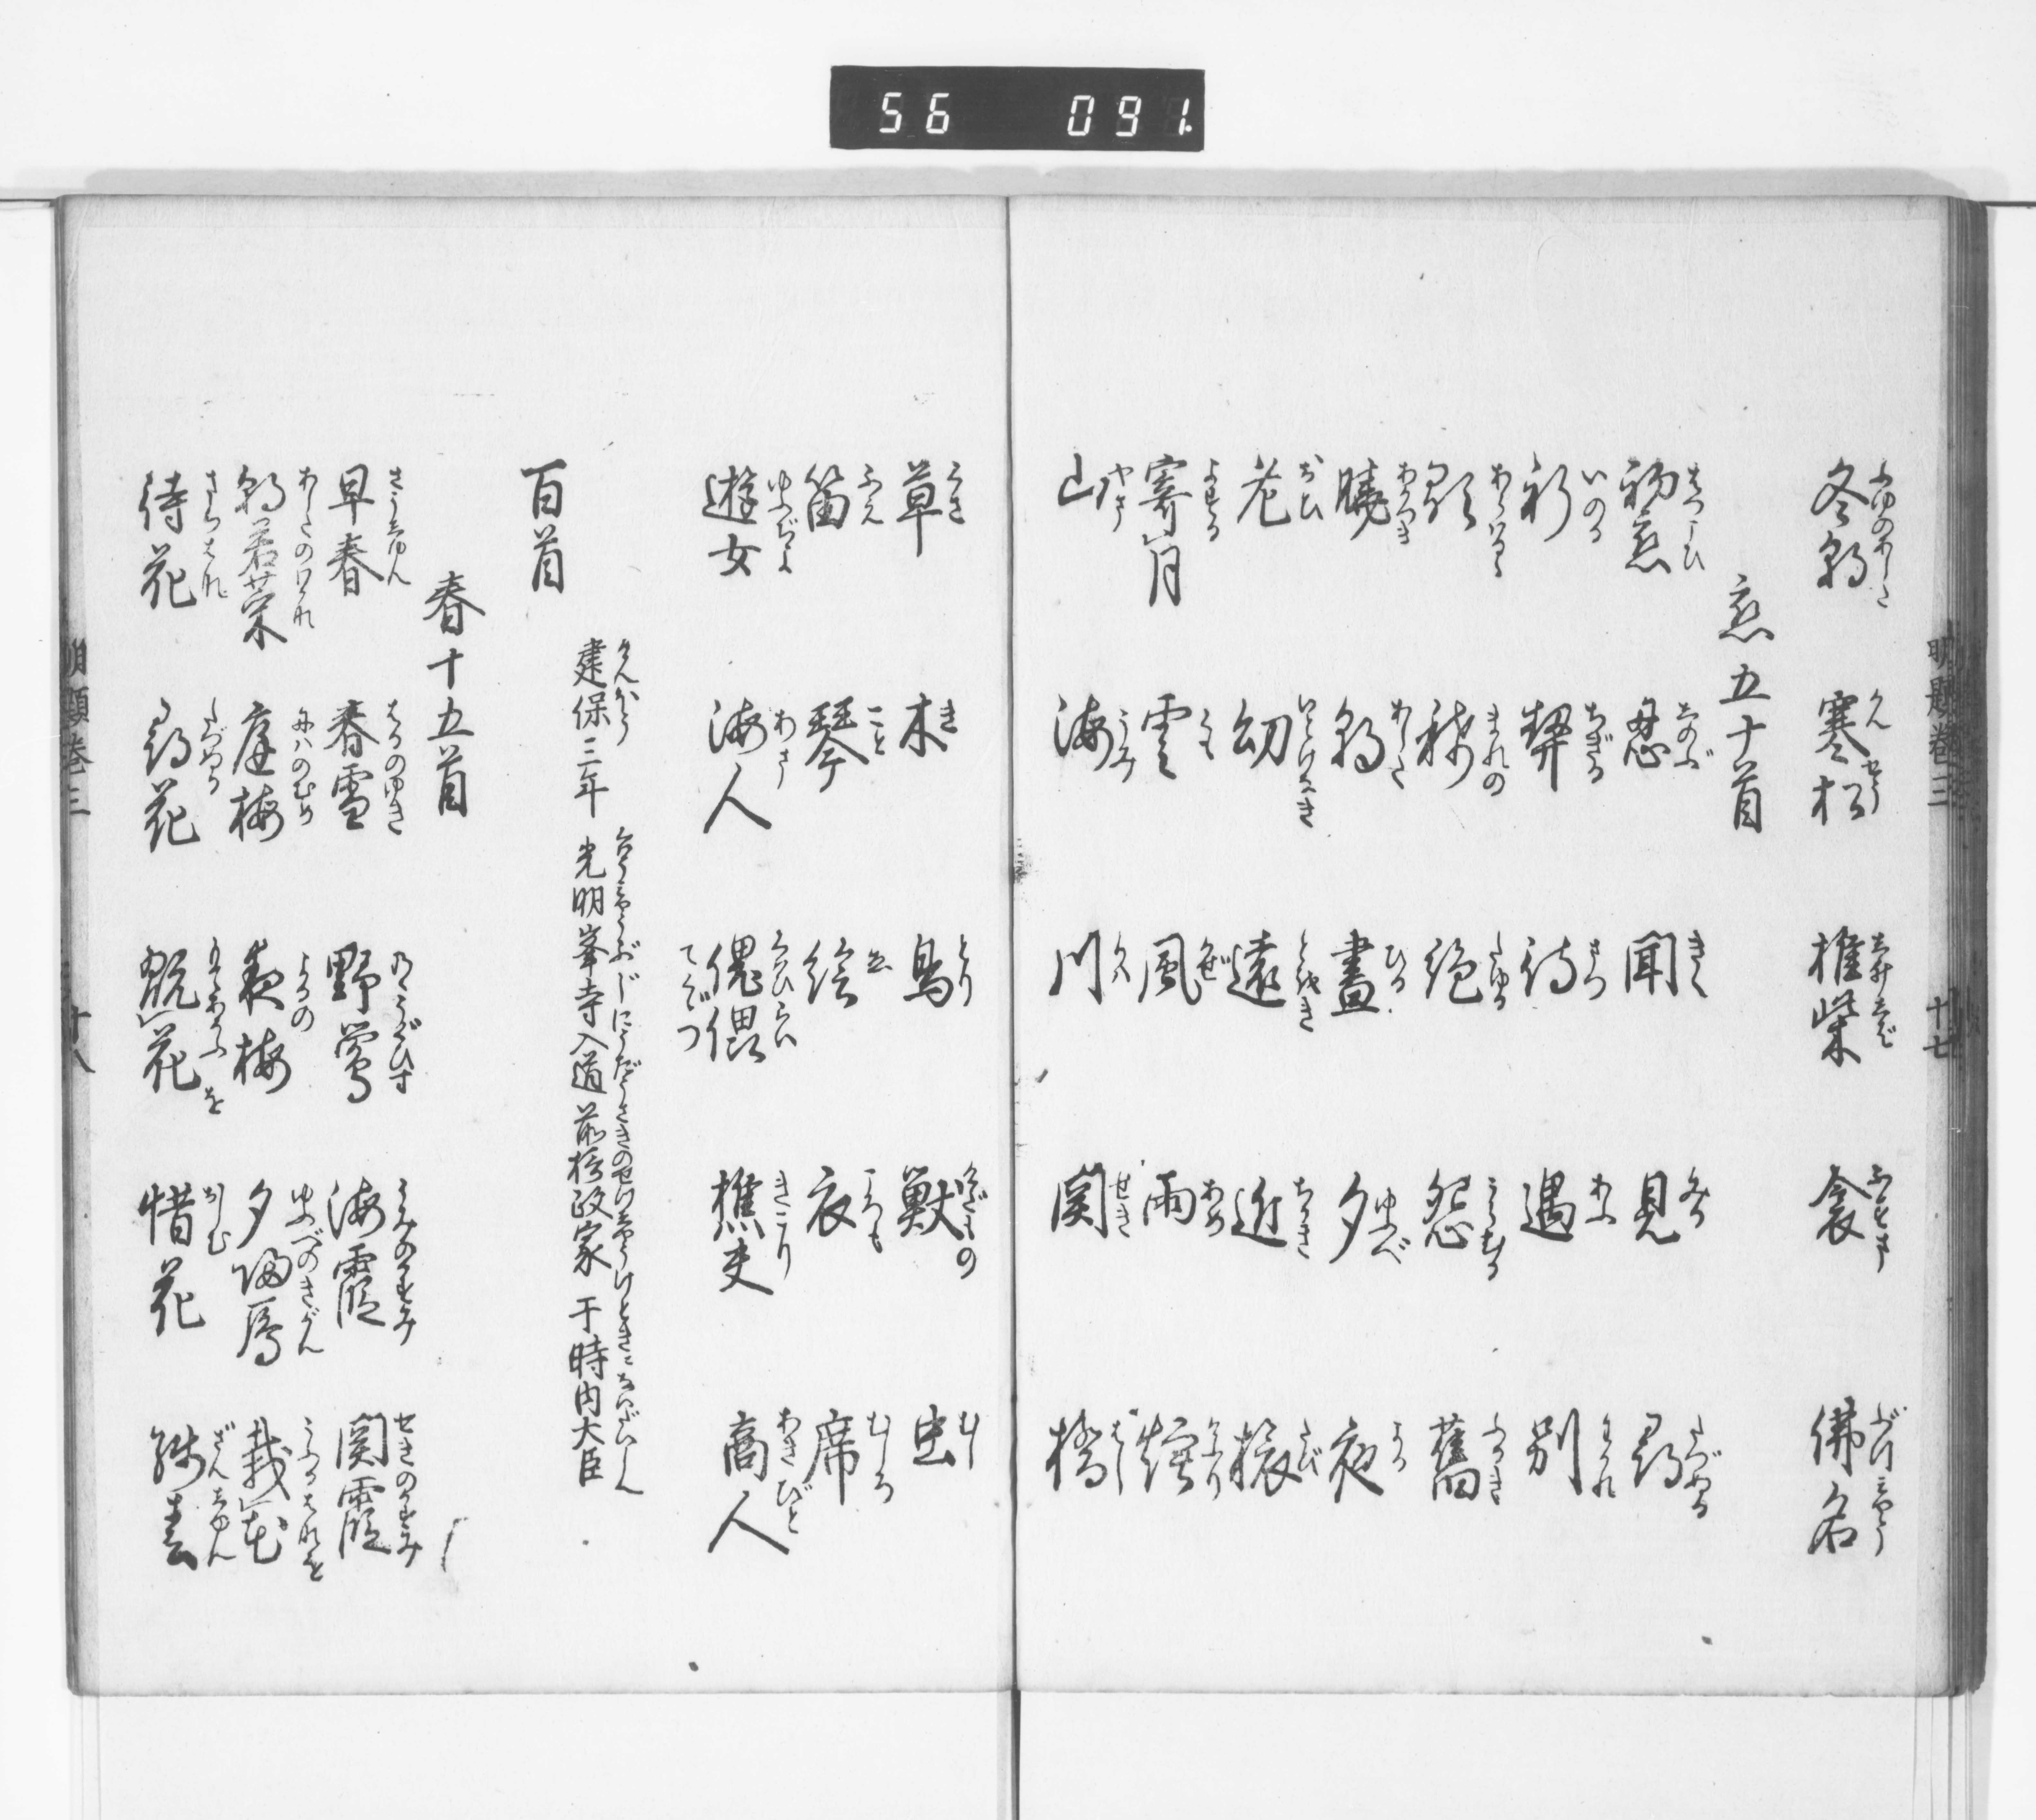 56 091
明題巻三 十七
冬朝 寒松 椎柴 衾 佛名
恋五十首
初恋 忍 聞 見 尋
祈 契 待 遇 別
顕 稀 絶 怨 舊
暁 朝 晝 夕 夜
老 幼 遠 近 旅
寄月 雲 風 雨 煙
山 海 川 関 橋
草 木 鳥 獣 虫
笛 琴 絵 衣 席
遊女 海人 傀儡 樵夫 商人
百首
建保三年 光明峯寺入道前摂政家 于時内大臣
春十五首
早春 春雪 野鶯 海霞 関霞
朝若菜 庭梅 夜梅 夕帰雁 栽花
待花 尋花 翫花 惜花 残春
明題巻三 十八